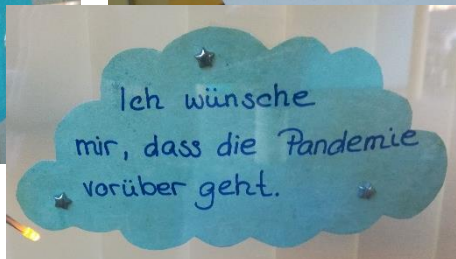 Ich wünsche
mir, dass die Pandemie
vorüber geht.